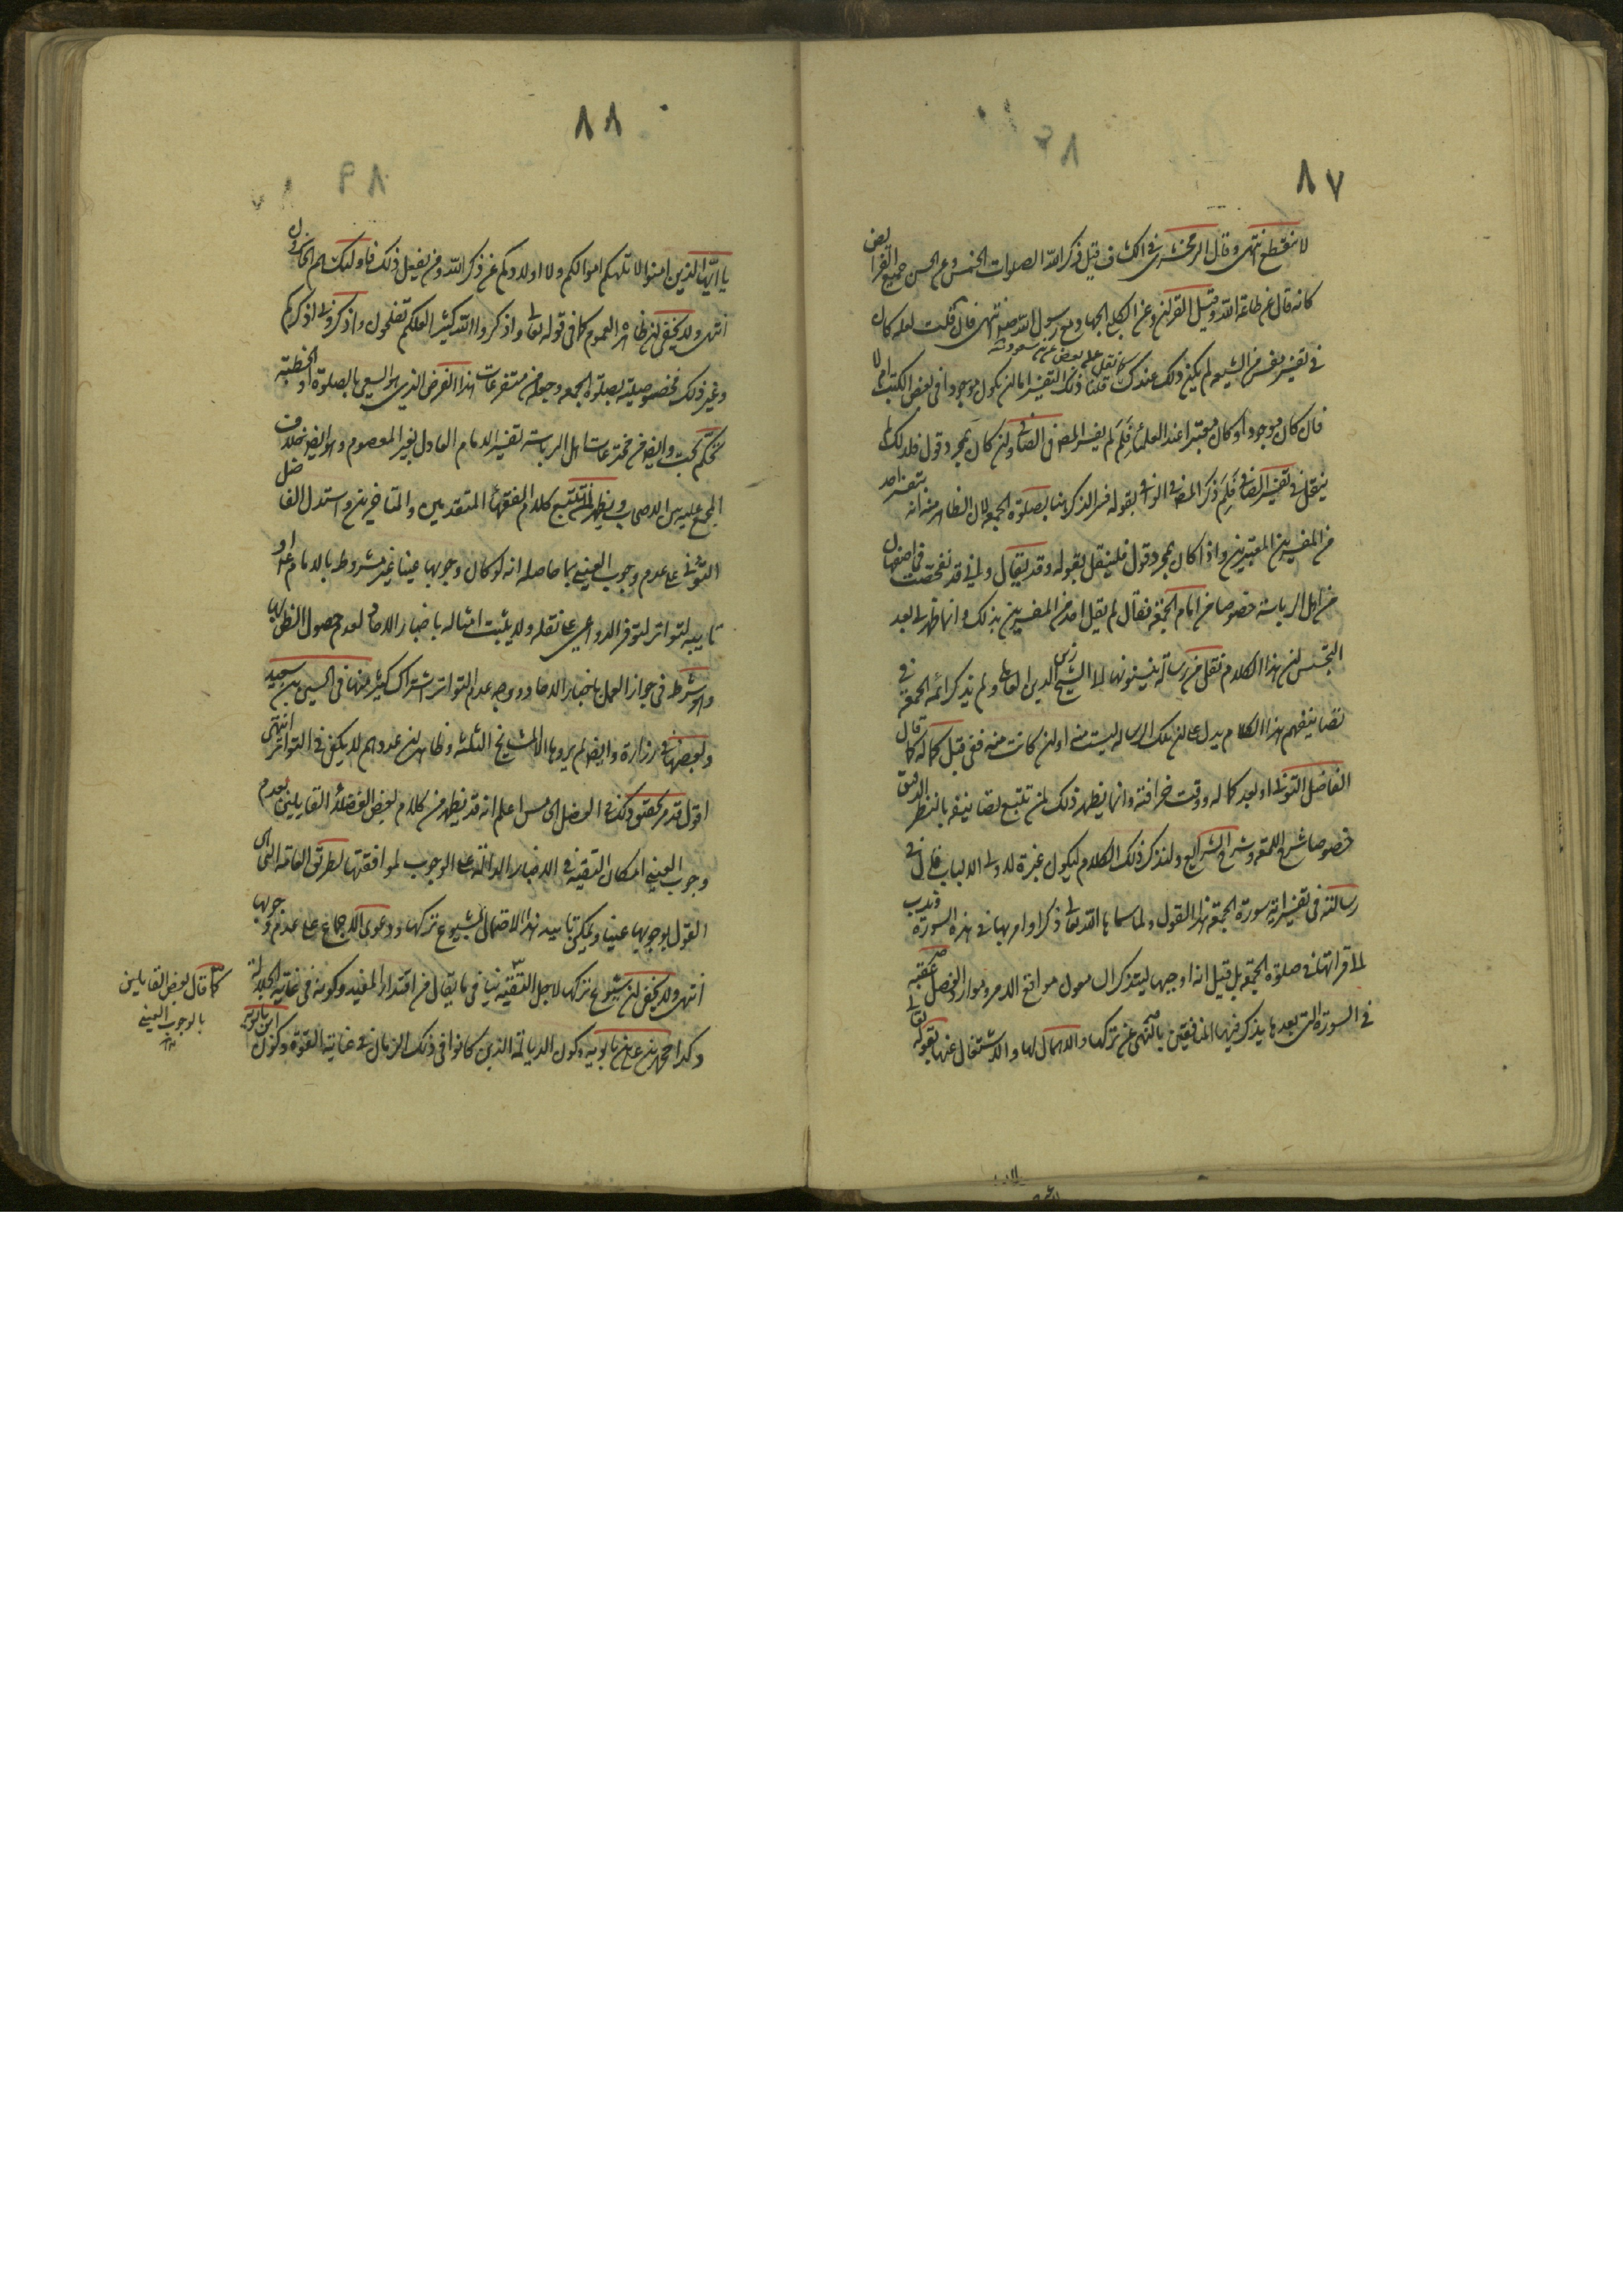 ٨٧
لا ينقطع انتهى وقال الزمخشري في الكشاف قيل ذكر الله الصلوات الخمس وعن الحسن جميع الفرائض
كانه قال عن طاعة الله وقيل القران وعن الكلبي الجهاد مع رسول الله صم انتهى فان قلت لعله كان
في تفسير بعض من الشيعة لم يكن ذلك عندك قلنا ذلك التفسير اما ان يكون موجودا في بعض الكتب ام لا
فان كان موجودا وكان معتبرا عند العلماء فلم لم يفسر المص في الصافي وان كان بمجرد قول فلذلك لم
ينقل في تفسير الصافي فلم ذكر المص في الوافي بقوله فسر الذكر هنا بصلوة الجمعة لان الظاهر منه انه تفسير احد
من المفسرين المعتبرين واذا كان بمجرد قول فلينقل بقوله وقد يقال واني قد تفحصت في اصفهان
من اهل الرياسة خصوصا من امام الجمعة فقال لم يقل احد من المفسرين بذلك وانما ظهر لي بعد
التجسس ان هذا الكلام نقل من رسالة ينسبونها الى الشيخ زين الدين العاملي ولم يذكر ائمة الجمعة في
تصانيفهم هذا الكلام يدل على ان تلك الرسالة ليست منه او ان كانت منه ففي قبل كماله كما قال
الفاضل التوني او بعد كماله ووقت خرافته وانما يظهر ذلك لمن تتبع تصانيفه بالنظر الدقيق
خصوصا شرح اللمعة وشرح الشرايع ولنذكر ذلك الكلام ليكون عبرة لاولي الالباب قال في
رسالته في تفسير اية سورة الجمعة هذا القول ولما سماها الله تعالى ذكرا وامر بها في هذه السورة وندب
الى قرائتها في صلوة الجمعة بل قيل انه اوجبها ليتذكر السامعون مواقع الامر وموارد الفضل عقبه
في السورة التي بعدها يذكر فيها المنافقين بالنهي عن تركها والاهمال لها والاشتغال عنها بقوله تعالى
٨٨
يا ايها الذين امنوا لا تلهكم اموالكم ولا اولادكم عن ذكر الله ومن يفعل ذلك فاولئك هم الخاسرون
انتهى ولا يخفى ان ظاهره العموم كما في قوله تعالى واذكروا الله كثيرا لعلكم تفلحون واذكروني اذكركم
وغير ذلك فخصوصيته بصلوة الجمعة وجعله من متفرعات هذا الفرض الذي هو السعي بالصلوة او الخطبة
تحكم بحت وايضا من مخترعات اهل الرياسة تفسير الامام العادل بغير المعصوم وهو ايضا خلاف
المجمع عليه بين الاصحاب ويظهر لمن تتبع كلام الفقهاء المتقدمين والمتاخرين واستدل الفاضل
التوني على عدم وجوب العيني بما حاصله انه لو كان وجوبها عينا غير مشروطة بالامام او
نايبه لتواتر لتوفر الدواعي على نقله ولا يثبت امثاله باخبار الاحاد لعدم حصول الظن بها
وهو شرط في جواز العمل باخبار الاحاد ووجه عدم التواتر اشتراك كثير منها في الحسين بن سعيد
وبعضها في زرارة وايضا لم يروها الا المشايخ الثلثة وظاهر ان عددهم لا يكفي في التواتر انتهى
اقول قد مر تحقيق ذلك في الفصل الخامس اعلم انه قد يظهر من كلام بعض الفضلاء القايلين بعدم
وجوب العيني امكان التقية في الاخبار الدالة على الوجوب لموافقتها لطريق العامة اذ
القول بوجوبها عينا ويمكن تاييد هذا الاحتمال بشيوع تركها ودعوى الاجماع على عدم وجوبها
انتهى ولا يخفى ان شيوع تركها لاجل التقية ينافي ما يقال من اقتدار المفيد وكونه في غاية الجلالة
وكذا محمد بن علي بن بابويه وكون الديالمة الذين كانوا في ذلك الزمان في غاية القوة وكون
كما قال بعض القايلين
بالوجوب العيني
منه